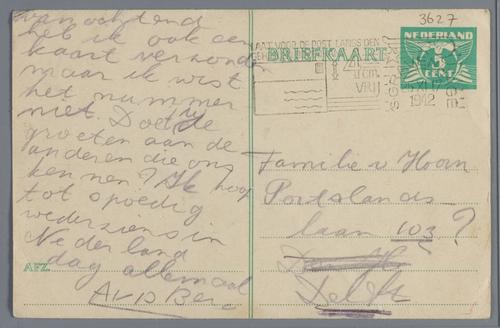 van ochtend
heb ik ook een
kaart verzonden
maar ik wist
het nummer
niet. Doet U de
groeten aan de
anderen die ons
kennen? Ik hoop
tot spoedig
wederziens in
Nederland
dag allemaal
AFZ.
3627
NEDERLAND
5
CENT
BRIEFKAART
VOOR DE POST LANGS DEN
4 cm
VRIJ
1942
Familie v Hoorn
Portlands
laan 103?
Delft